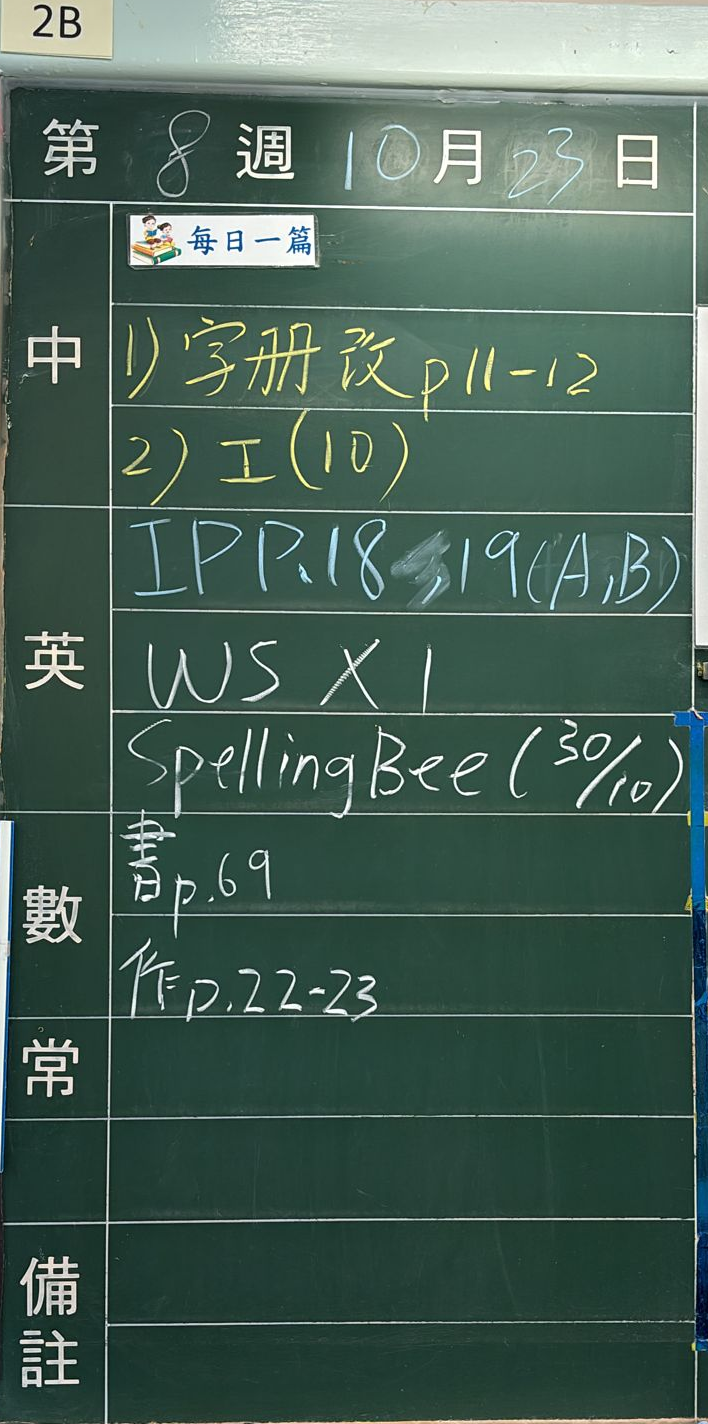 2B
第 8 週 10 月 23 日
中
每日一篇
1) 字册 改 p11-12
2) 工(10)
英
IP P.18,19(A,B)
WS X 1
Spelling Bee (30/10)
數
書p.69
作p.22-23
常
備註